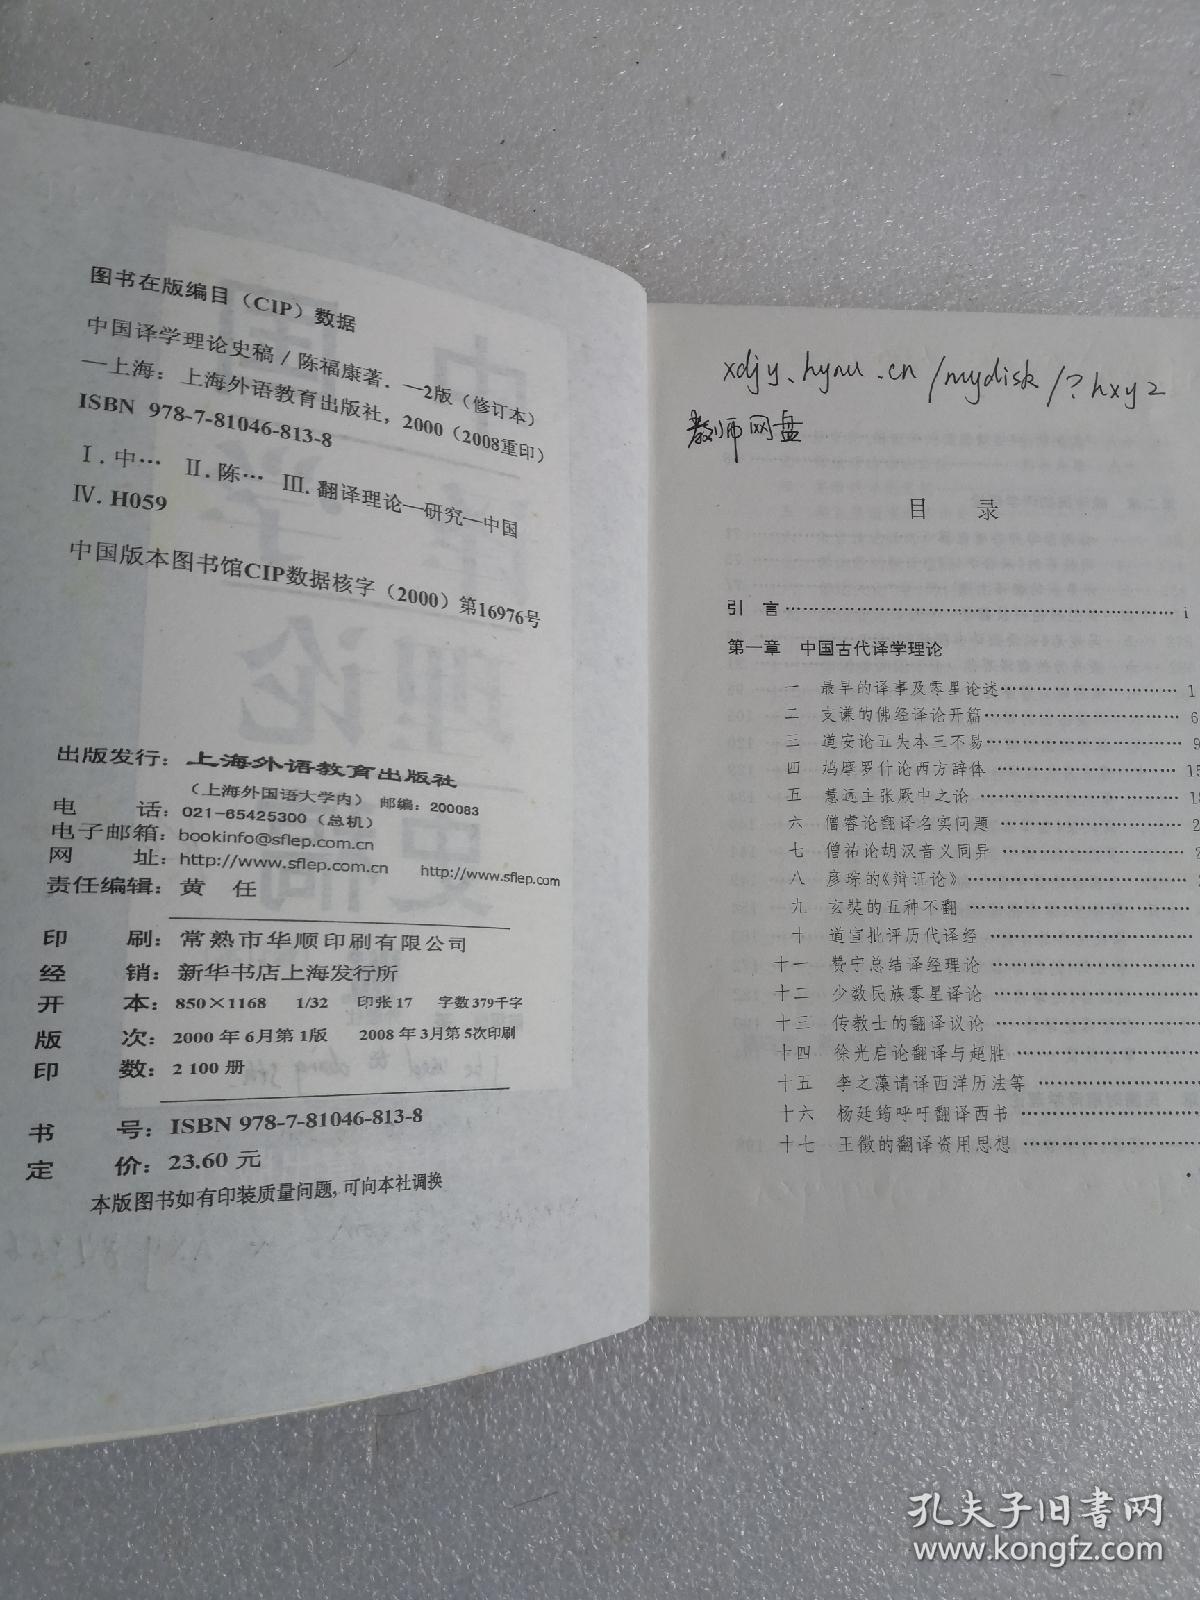 图书在版编目（CIP）数据
中国译学理论史稿/陈福康著．—2版（修订本）
—上海：上海外语教育出版社，2000（2008重印）
ISBN 978-7-81046-813-8
Ⅰ.中… Ⅱ.陈… Ⅲ.翻译理论—研究—中国
Ⅳ.H059
中国版本图书馆CIP数据核字（2000）第16976号
出版发行：上海外语教育出版社
（上海外国语大学内） 邮编：200083
电 话：021-65425300（总机）
电子邮箱：bookinfo@sflep.com.cn
网 址：http://www.sflep.com.cn http://www.sflep.com
责任编辑：黄 任
印 刷：常熟市华顺印刷有限公司
经 销：新华书店上海发行所
开 本：850×1168 1/32 印张17 字数379千字
版 次：2000年6月第1版 2008年3月第5次印刷
印 数：2 100册
书 号：ISBN 978-7-81046-813-8
定 价：23.60元
本版图书如有印装质量问题，可向本社调换
xdjy.hynu.cn/mydisk/?hxyz
教师网盘
目 录
引 言……………………………………i
第一章 中国古代译学理论
一 最早的译事及零星论述……………………1
二 支谦的佛经译论开篇……………………6
三 道安论五失本三不易……………………9
四 鸠摩罗什论西方辞体……………………15
五 慧远主张厥中之论……………………
六 僧睿论翻译名实问题……………………
七 僧祐论胡汉音义同异……………………
八 彦琮的《辩证论》……………………
九 玄奘的五种不翻……………………
十 道宣批评历代译经……………………
十一 赞宁总结译经理论……………………
十二 少数民族零星译论……………………
十三 传教士的翻译议论……………………
十四 徐光启论翻译与超胜……………………
十五 李之藻请译西洋历法等……………………
十六 杨廷筠呼吁翻译西书……………………
十七 王徵的翻译资用思想……………………
孔夫子旧书网
www.kongfz.com